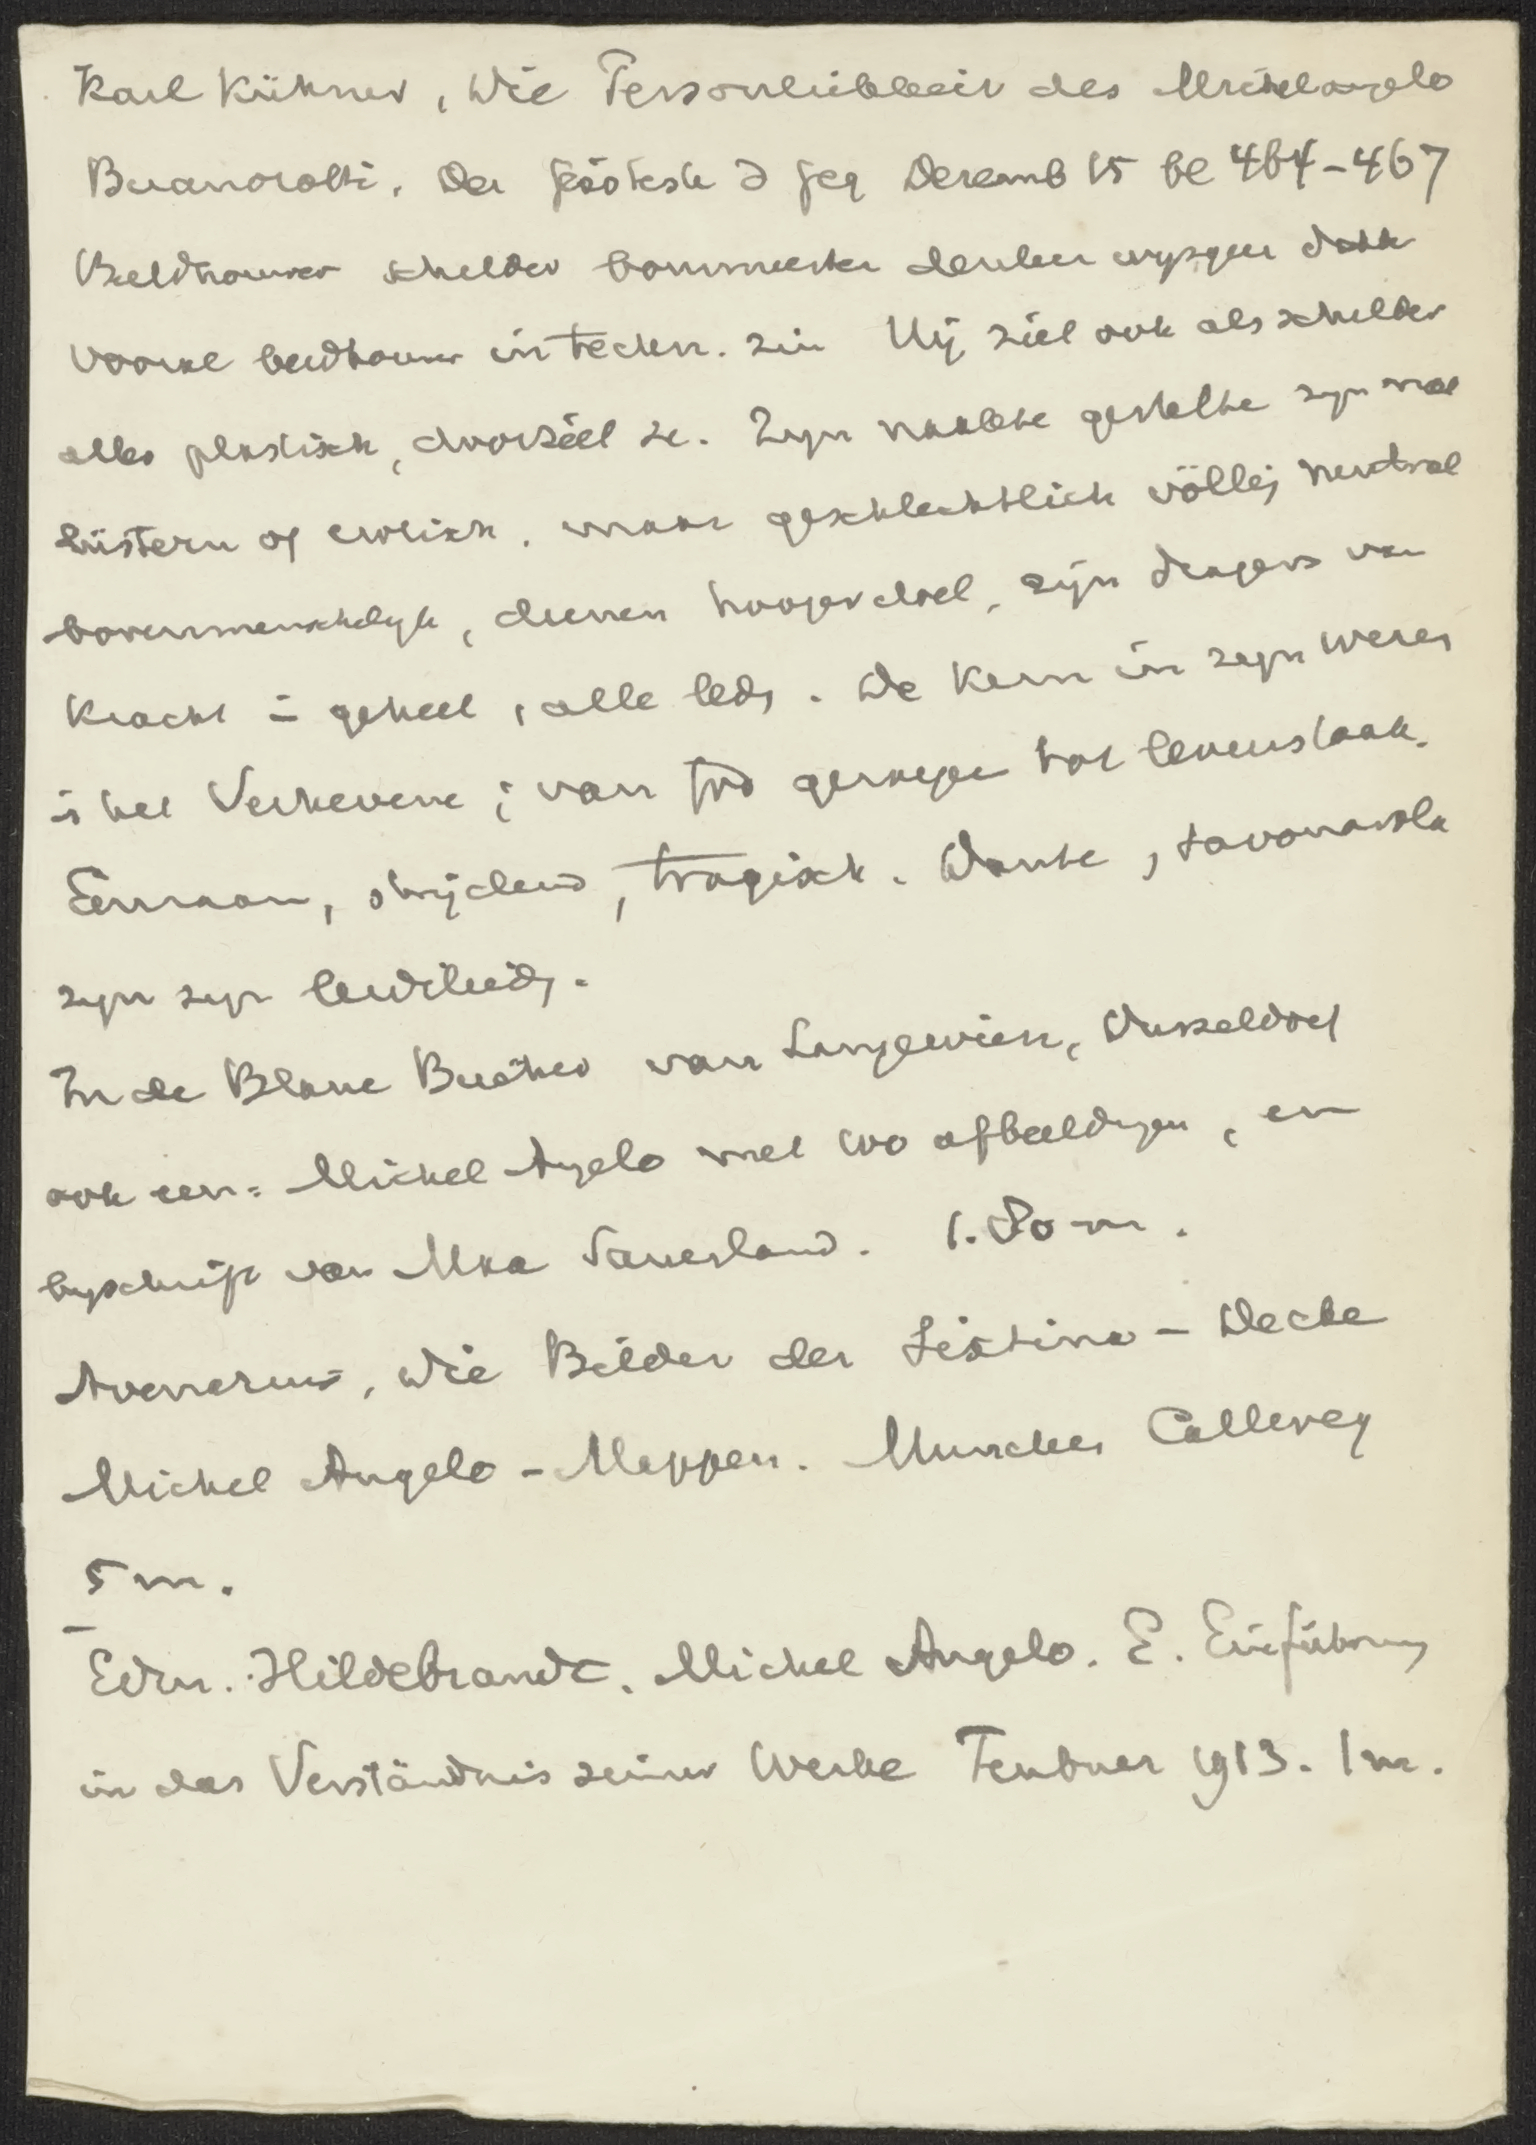 Karl Kühner, Die Personlichkeit des Michelangelo
Buanorotti. Der Decemb 15 bl 464-467
Beeldhouwer schilder bouwmeester denker
vooral beeldhouwer in techn. zin Hij ziet ook als schilder
alles plastisch, doorziet ze. Zijn naakte gestalte zyn niet
lüstern of erotisch. maar geschlechtlich völlig neutral
bovenmenschelyk, dienen hooger doel, zijn dragers van
Kracht geheel, alle leds. De Kern in zyn werk
is het Verhevene; van God geroepen tot levenstaak.
Eenzaam, strijdend, tragisch. Dante, Savonarola
zyn zyn
In de Blaue Bücher van Langewien, Dusseldorf
ook een: Michel Angelo met 100 afbeeldingen, en
byschrift van Max Sauerland. 1.80 m.
Avenarius, Die Bilder der Sixtina - Decke
Michel Angelo - Mappen. Munchen Callwey
5 m.
Edm. Hildebrandt. Michel Angelo. E. Einführung
in das Verständnis seiner Werke Teubner 1913. 1 m.